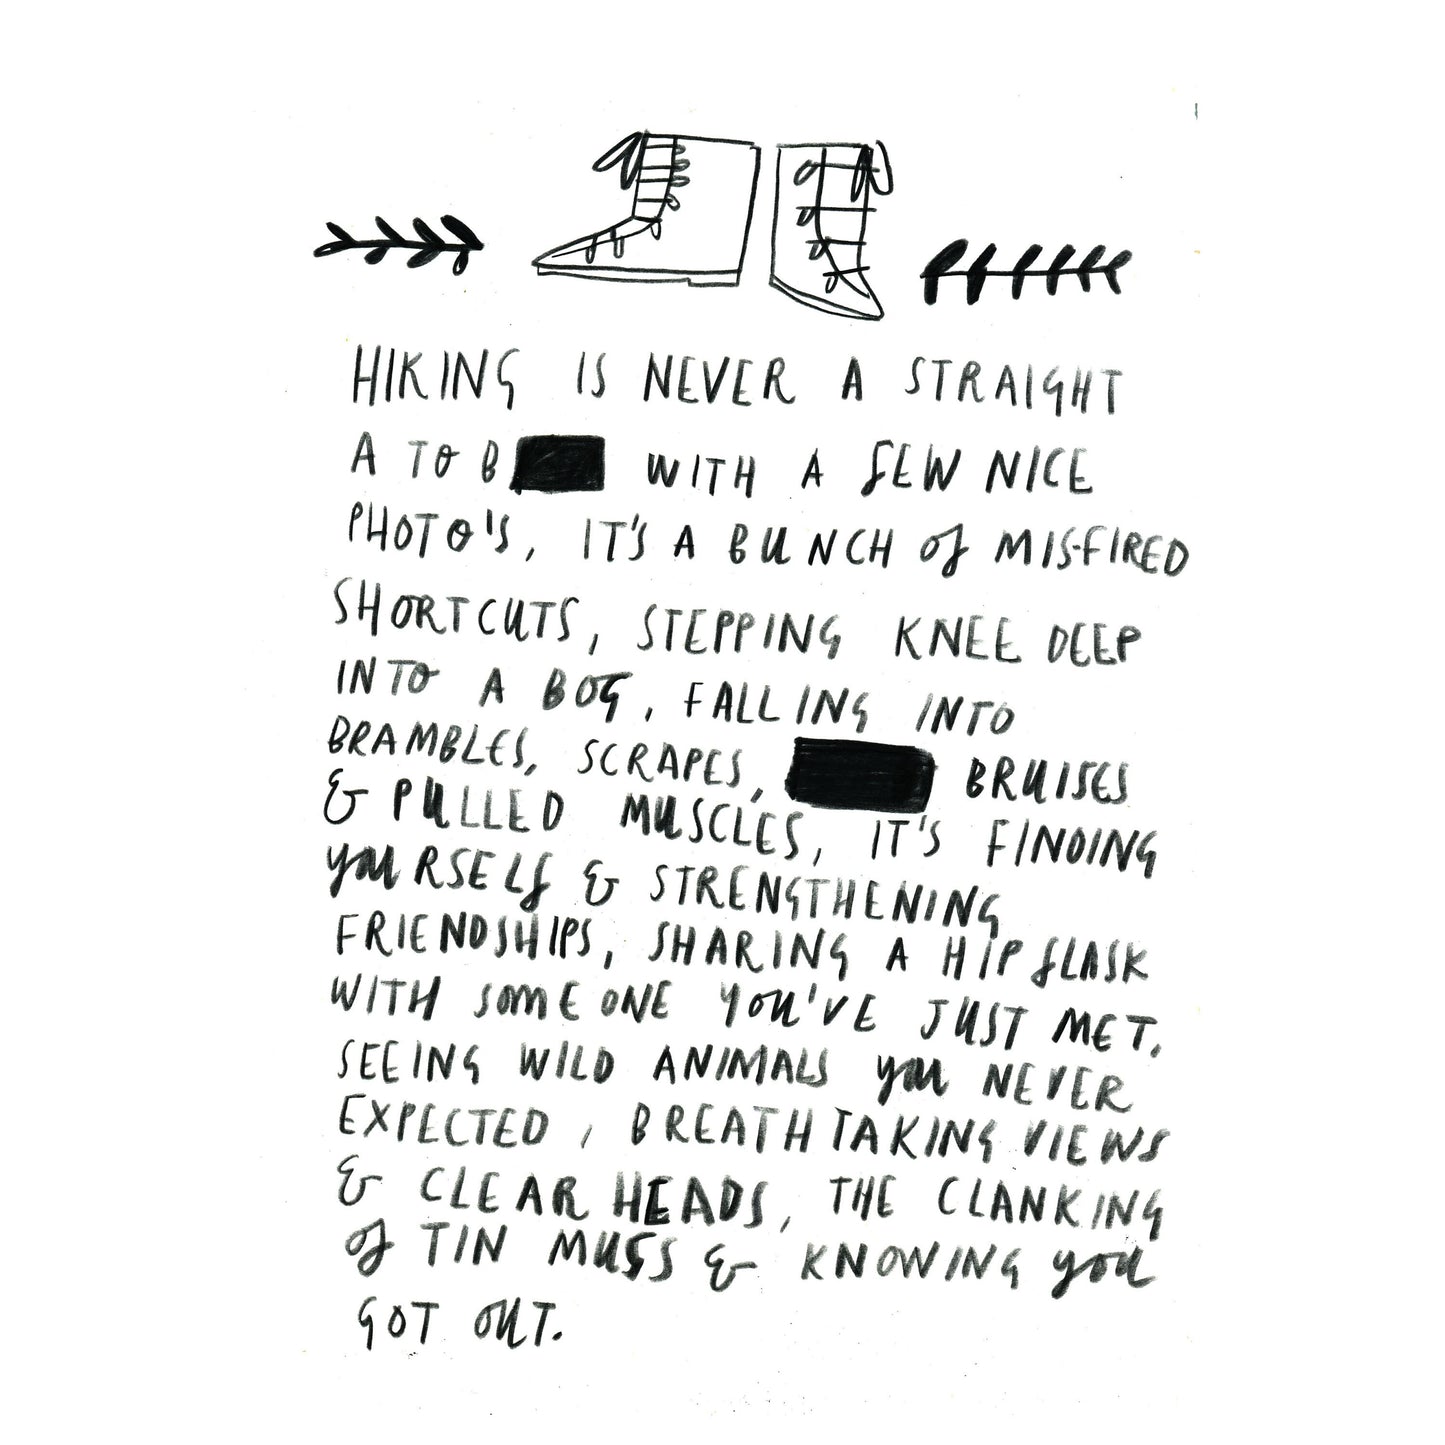 HIKING IS NEVER A STRAIGHT
A TO B WITH A FEW NICE
PHOTO'S, IT'S A BUNCH OF MISFIRED
SHORTCUTS, STEPPING KNEE DEEP
INTO A BOG, FALLING INTO
BRAMBLES, SCRAPES, BRUISES
& PULLED MUSCLES, IT'S FINDING
YOURSELF & STRENGTHENING
FRIENDSHIPS, SHARING A HIP FLASK
WITH SOMEONE YOU'VE JUST MET,
SEEING WILD ANIMALS YOU NEVER
EXPECTED, BREATHTAKING VIEWS
& CLEAR HEADS, THE CLANKING
OF TIN MUGS & KNOWING YOU
GOT OUT.